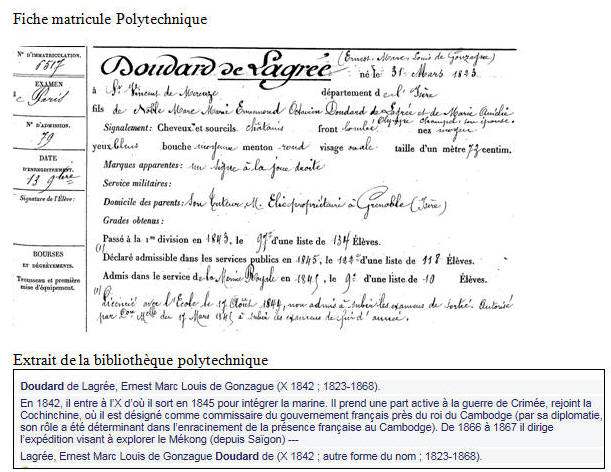 Fiche matricule Polytechnique
N° D'IMMATRICULATION.
EXAMEN
à Paris
N° D'ADMISSION.
79
DATE
D'ENREGISTREMENT.
Signature de l'Élève :
BOURSES
ET DÉGRÈVEMENTS.
Trousseau et première
mise d'équipement.
(Ernest-Marc-Louis de Gonzague)
Doudard de Lagrée né le 31 Mars 1823
à St Vincent de Mercuze département de l'Isère
fils de Noble Marc Marie Emmanuel Octavien Doudard de Lagrée et de Marie
Signalement : Cheveux et sourcils châtains front bombé nez moyen
yeux bleus bouche moyenne menton rond visage ovale taille d'un mètre 72 centim.
Marques apparentes : un signe à la joue droite
Service militaires :
Domicile des parents : Son tuteur M. Elie propriétaire à Grenoble (Isère)
Grades obtenus :
Passé à la 1re division en 1843, le 97e d'une liste de 134 Élèves.
(1)
Déclaré admissible dans les services publics en 1845, le 122e d'une liste de 118 Élèves.
Admis dans le service de la Marine Royale en 1845, le 9e d'une liste de 10 Élèves.
(1) Licencié avec l'Ecole le 17 Août 1844, non admis à subir les examens de sortie. Autorisé
par du 17 Mars 1845 à subir les examens de fin d'année.
Extrait de la bibliothèque polytechnique
Doudard de Lagrée, Ernest Marc Louis de Gonzague (X 1842 ; 1823-1868).
En 1842, il entre à l'X d'où il sort en 1845 pour intégrer la marine. Il prend une part active à la guerre de Crimée, rejoint la
Cochinchine, où il est désigné comme commissaire du gouvernement français près du roi du Cambodge (par sa diplomatie,
son rôle a été déterminant dans l'enracinement de la présence française au Cambodge). De 1866 à 1867 il dirige
l'expédition visant à explorer le Mékong (depuis Saïgon) ---
Lagrée, Ernest Marc Louis de Gonzague Doudard de (X 1842 ; autre forme du nom ; 1823-1868).